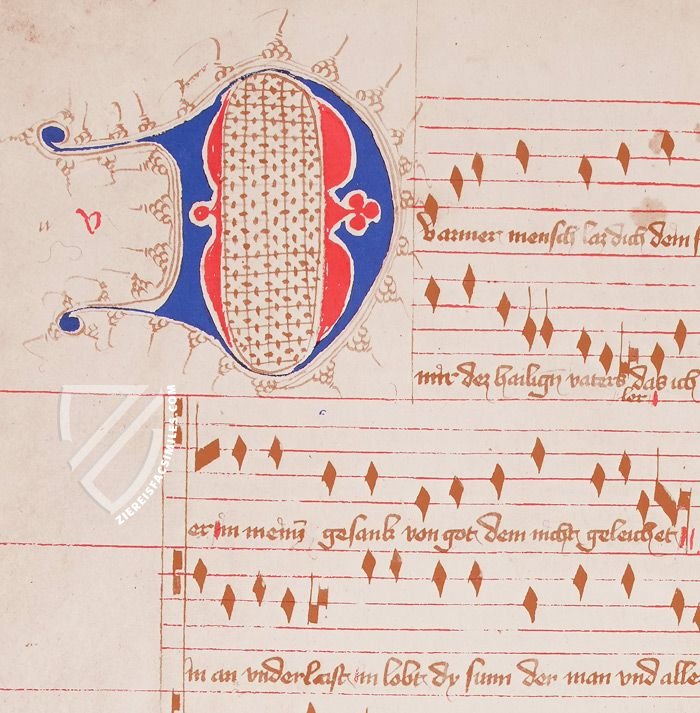 O
v
Varmer mensch lar dich dem s
mir der hailign vaters das ich
ler
er in meinn gesank von got dem nicht geleichet
In an vnderlast in lobt dy sunn der man vnd alle
ZIEREISFACSIMILES.COM